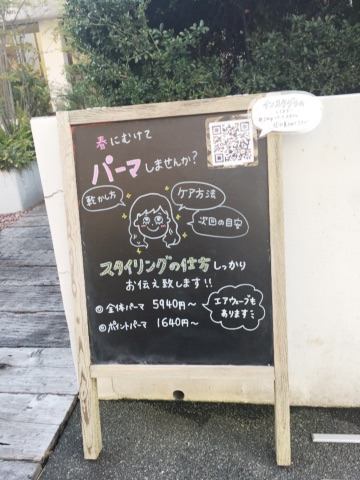 インスタグラム
春にむけて
パーマしませんか?
乾かし方
ケア方法
次回の目安
スタイリングの仕方しっかり
お伝え致します!!
◎全体パーマ 5940円〜
◎ポイントパーマ 1640円〜
エアウェーブも
あります